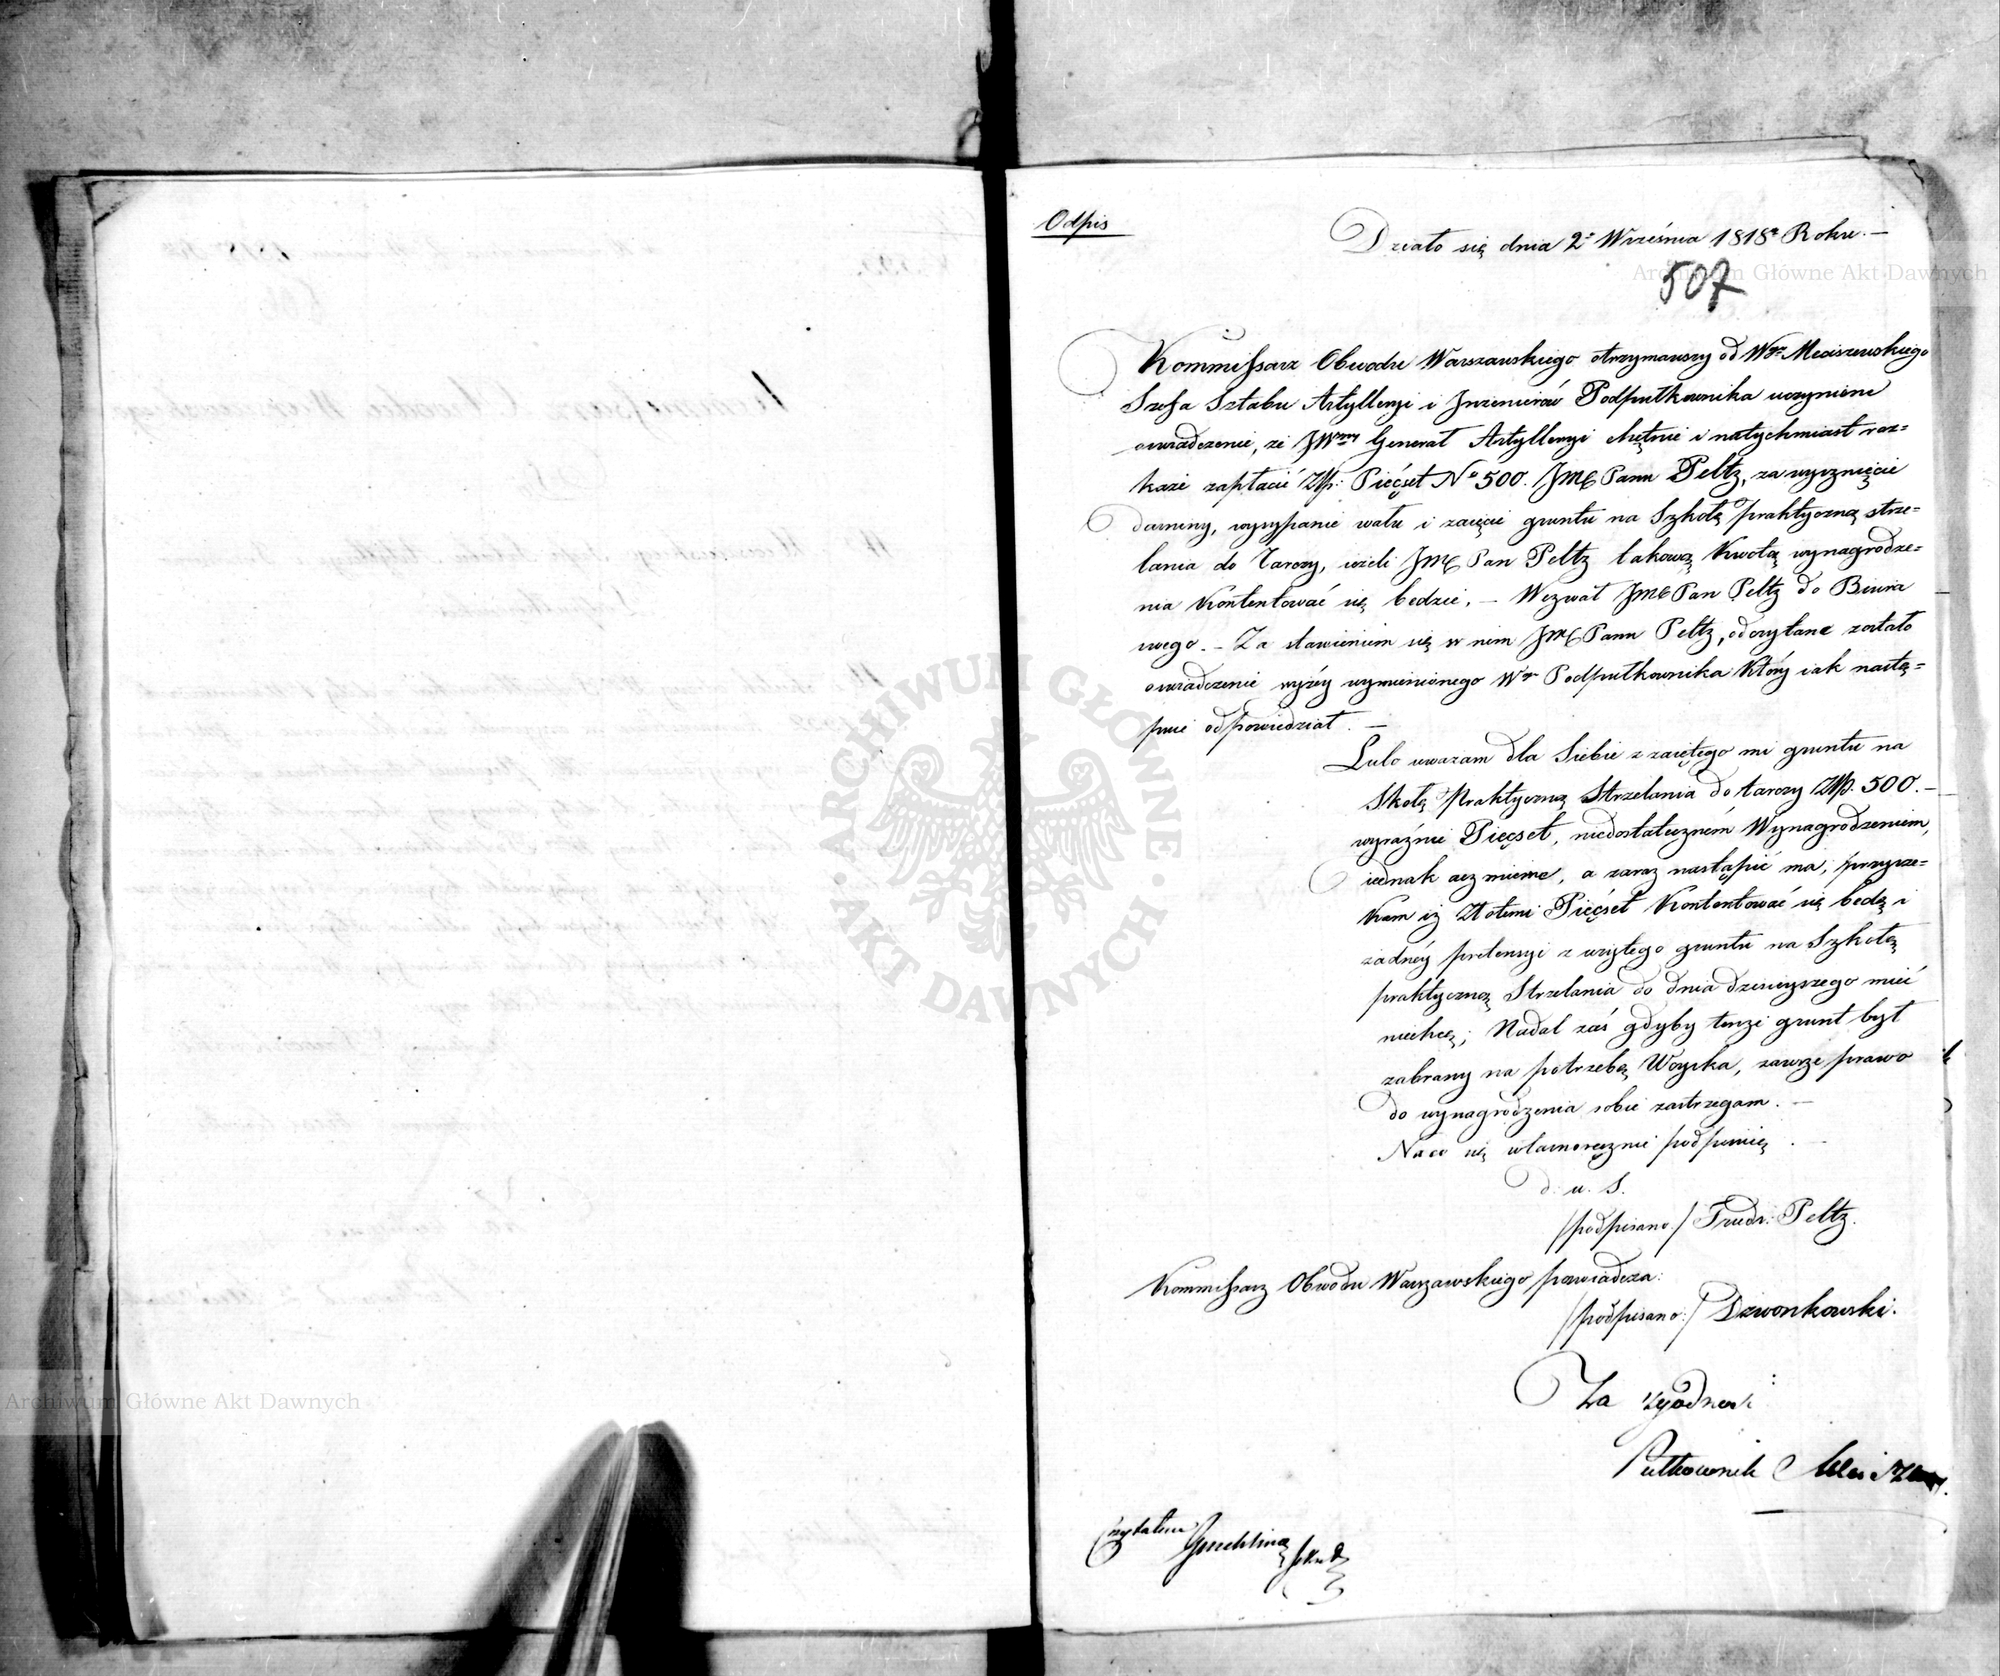 Odpis
Działo się dnia 2º Września 1818º Roku. —
507
Kommissarz Obwodu Warszawskiego otrzymawszy od Wgo Meciszewskiego
Szefa Sztabu Artylleryi i Jnzenierów Podpułkownika uczynione
oswiadczenie, ze JWny Generał Artylleryi chętnie i natychmiast roz=
kaze zapłacić Złp: Pięćset No 500. JMC Panu Peltz, za wyrznięcie
darniny, wysypanie wału i zaięcie gruntu na Szkołę praktyczną strze=
lania do Tarczy, iezeli JMC Pan Peltz takową kwotą wynagrodze=
nia kontentować się będzie, — Wezwał JMC Pan Peltz do Biura
swego. — Za stawieniem się w nim JMC Pana Peltz, odczytane zostało
oswiadczenie wyżéy wymienionego Wgo Podpułkownika który iak nastę=
puie odpowiedział. —
Lubo uwazam dla Siebie z zaiętego mi gruntu na
Skołę Praktyczną Strzelania do tarczy Złp. 500. —
wyraźnie Pięćset, niedostatecznem Wynagrodzeniem,
iednak acz mierne, a zaraz nastąpić ma, przyrze=
kam iż Złotemi Pięćset kontentować się będę i
zadnéy pretensyi z wziętego gruntu na Szkołę
praktyczną Strzelania do dnia dzisieyszego mieć
niechcę; Nadal zaś gdyby tenze grunt był
zabrany na potrzebę Woyska, zawsze prawo
do wynagrodzenia sobie zastrzegam. —
Naco się własnoręcznie podpisuię. —
d. u. S.
/podpisano:/ Fridr: Peltz.
Kommissarz Obwodu Warszawskiego poswiadcza:
/podpisano:/ Dzwonkowski.
Za zgodność:
Pułkownik
Czytałem
Archiwum Główne Akt Dawnych
Archiwum Główne Akt Dawnych
· ARCHIWUM GŁÓWNE · AKT DAWNYCH